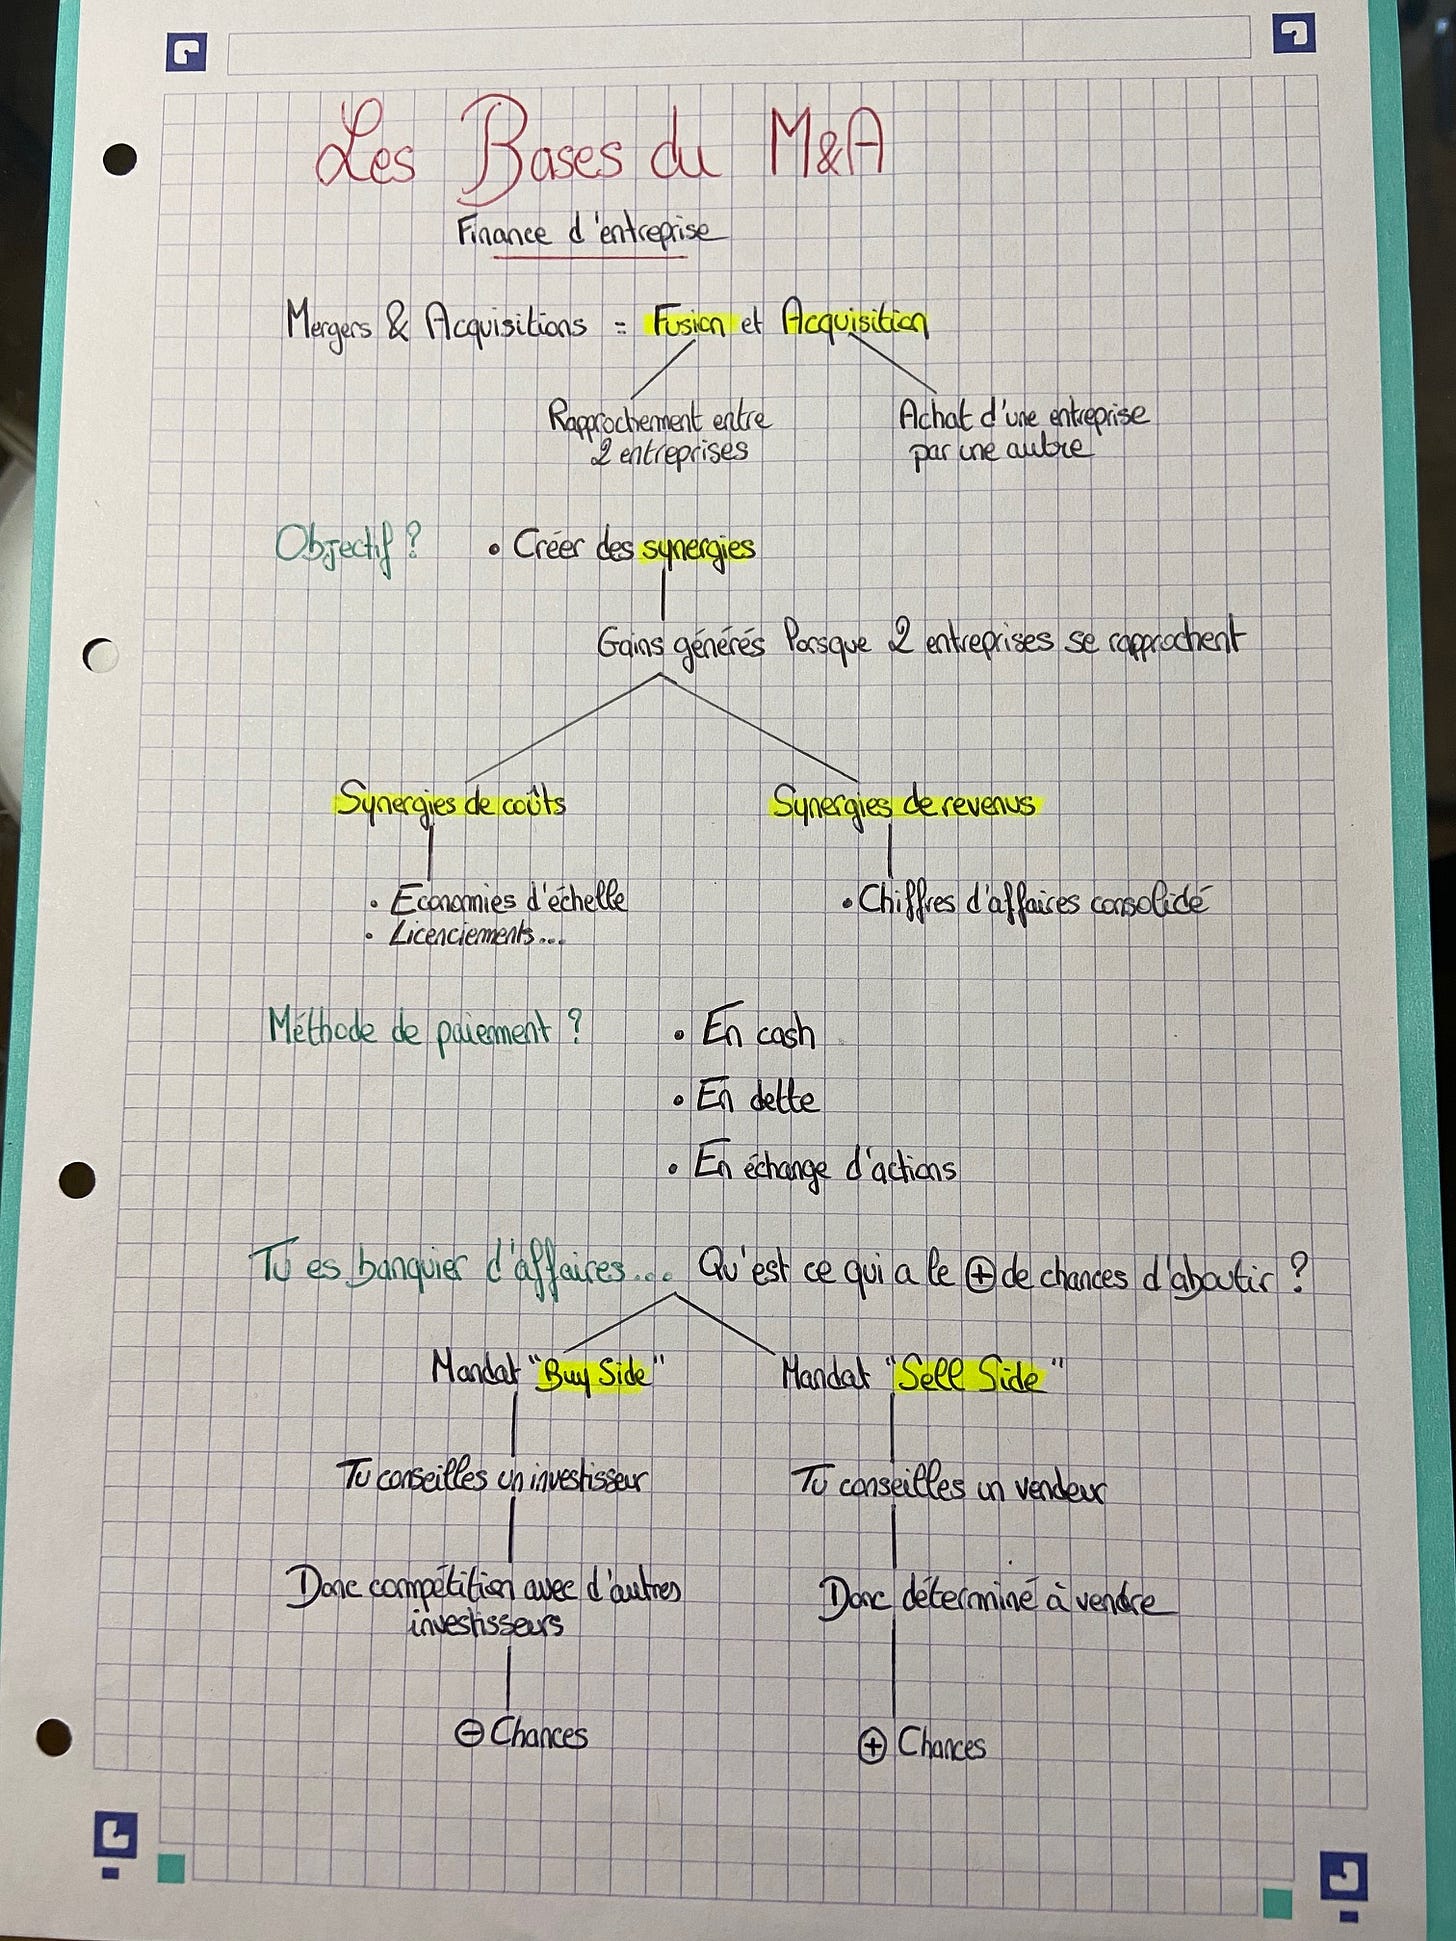 Les Bases du M&A
Finance d'entreprise
Mergers & Acquisitions = Fusion et Acquisition
Rapprochement entre
2 entreprises
Achat d'une entreprise
par une autre
Objectif ? • Créer des synergies
Gains générés lorsque 2 entreprises se rapprochent
Synergies de coûts
• Economies d'échelle
• Licenciements...
Synergies de revenus
• Chiffres d'affaires consolidé
Méthode de paiement ? • En cash
• En dette
• En échange d'actions
Tu es banquier d'affaires... Qu'est ce qui a le ⊕ de chances d'aboutir ?
Mandat "Buy Side"
Tu conseilles un investisseur
Donc compétition avec d'autres
investisseurs
⊖ Chances
Mandat "Sell Side"
Tu conseilles un vendeur
Donc déterminé à vendre
⊕ Chances